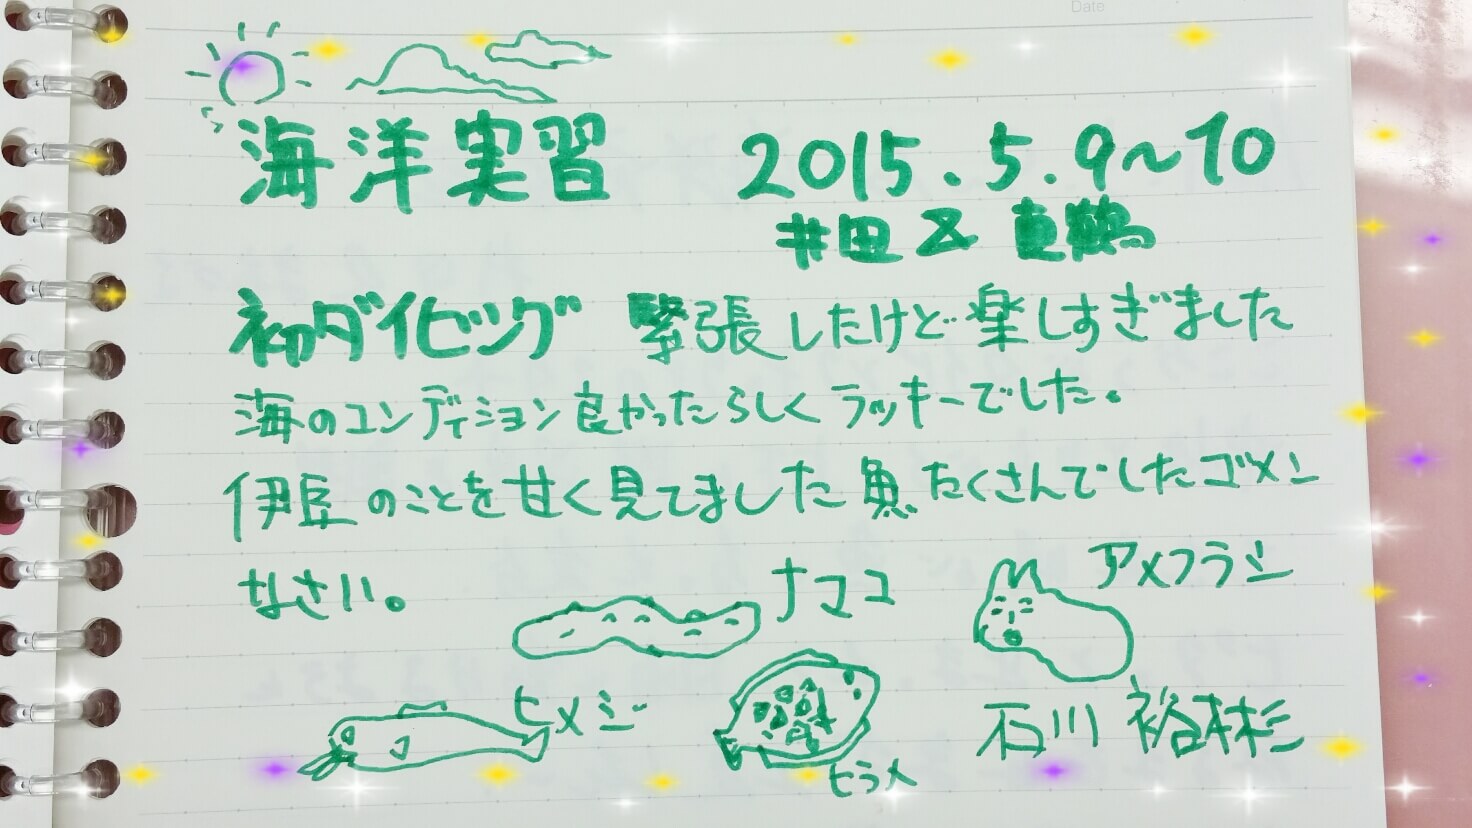 Date
海洋実習 2015.5.9~10
井田 & 真鶴
初ダイビング 緊張したけど楽しすぎました
海のコンディション良かったらしくラッキーでした。
伊豆のことを甘く見てました魚たくさんでしたゴメン
なさい。
ナマコ
アメフラシ
ヒメジ
ヒラメ
石川